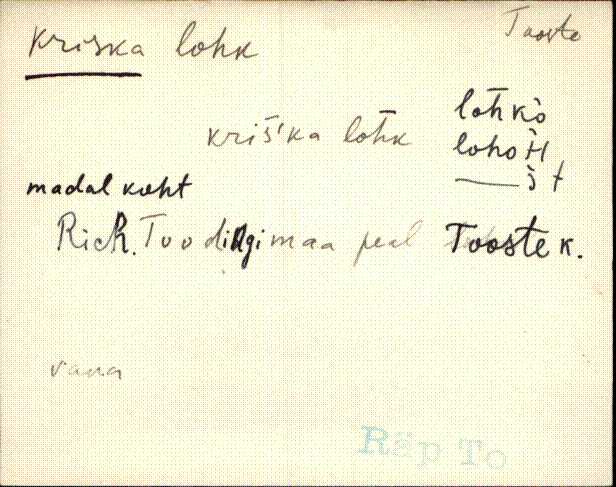 Kriska lohk
Tooste
kriš'ka lohk
lohkò
lohoH
madal koht
Rich. Toodingimaa peal Tooste k.
vana
Räp To